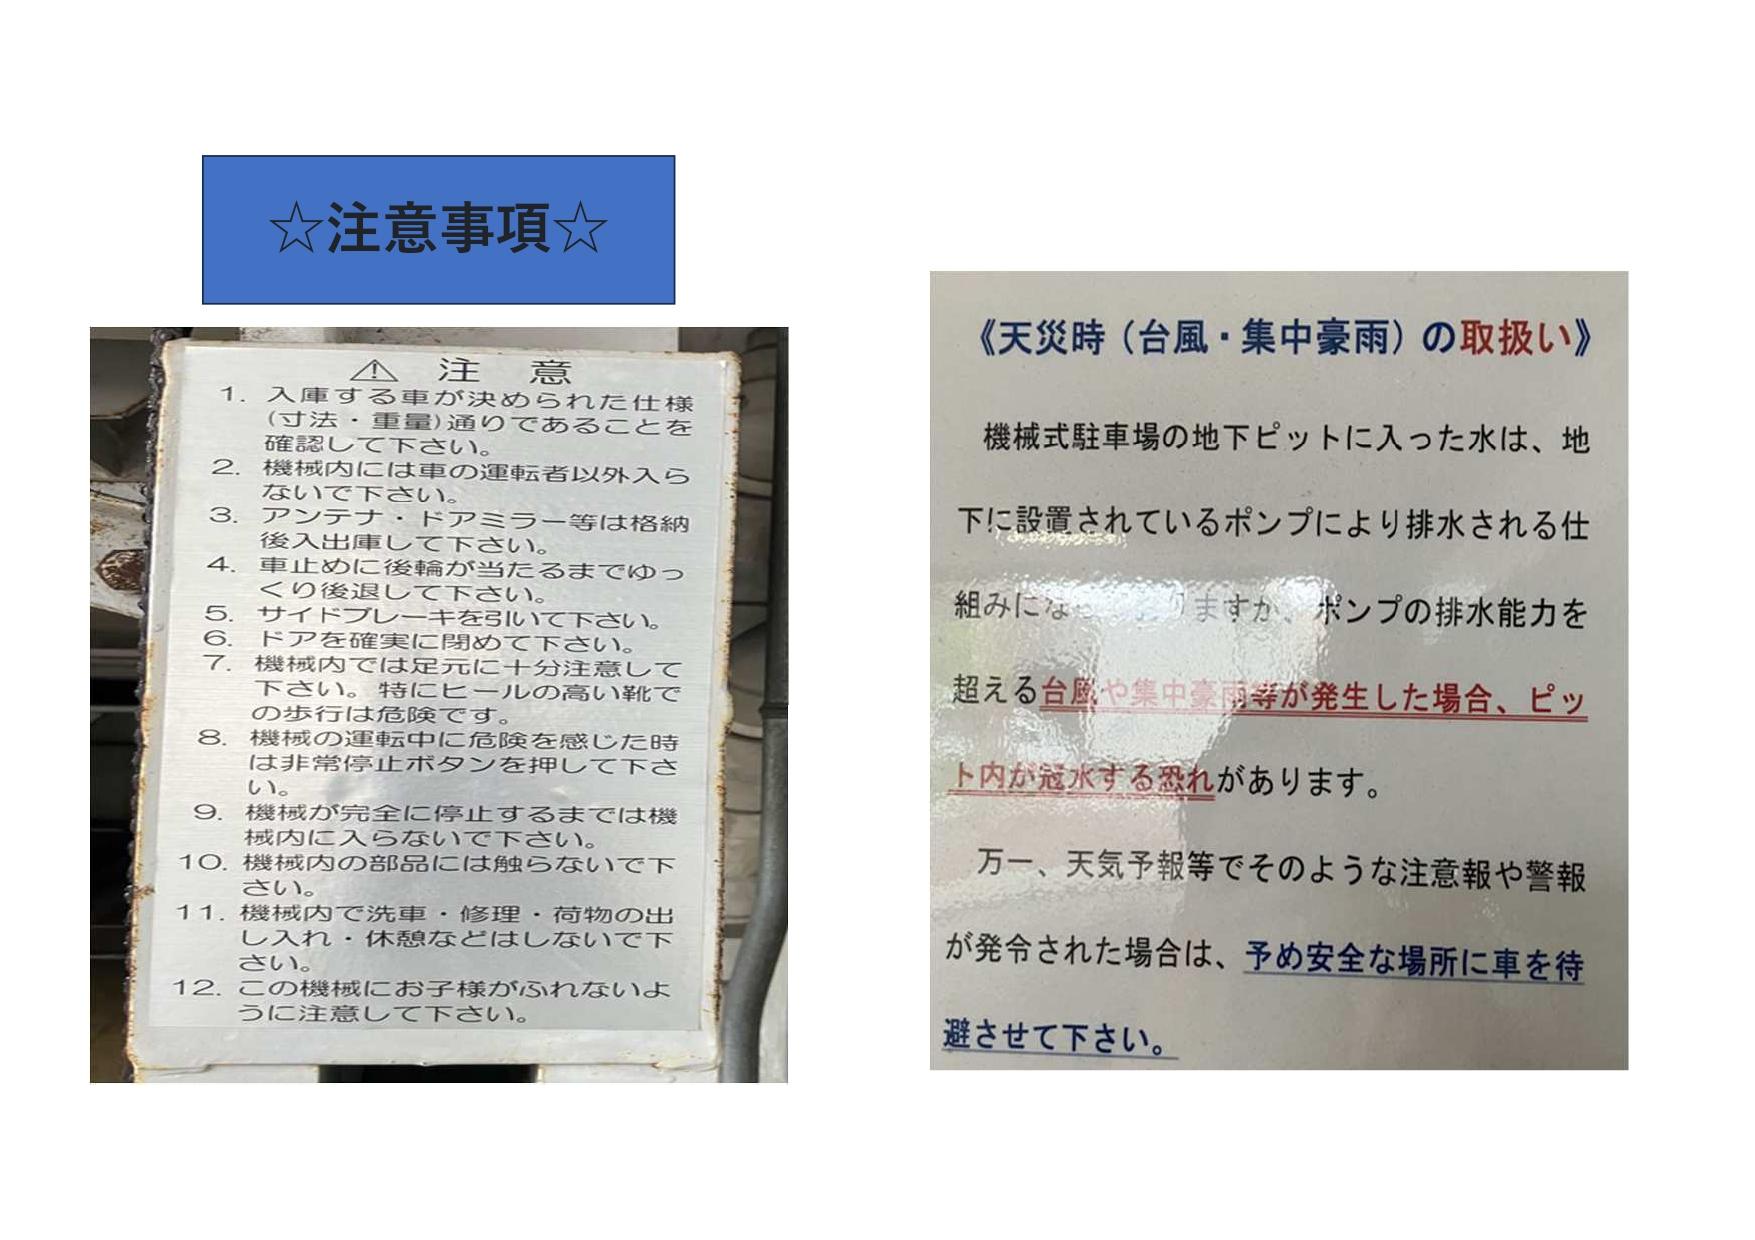 ☆注意事項☆
⚠ 注 意
1. 入庫する車が決められた仕様
(寸法・重量)通りであることを
確認して下さい。
2. 機械内には車の運転者以外入ら
ないで下さい。
3. アンテナ・ドアミラー等は格納
後入出庫して下さい。
4. 車止めに後輪が当たるまでゆっ
くり後退して下さい。
5. サイドブレーキを引いて下さい。
6. ドアを確実に閉めて下さい。
7. 機械内では足元に十分注意して
下さい。特にヒールの高い靴で
の歩行は危険です。
8. 機械の運転中に危険を感じた時
は非常停止ボタンを押して下さ
い。
9. 機械が完全に停止するまでは機
械内に入らないで下さい。
10. 機械内の部品には触らないで下
さい。
11. 機械内で洗車・修理・荷物の出
し入れ・休憩などはしないで下
さい。
12. この機械にお子様がふれないよ
うに注意して下さい。
《天災時（台風・集中豪雨）の取扱い》
機械式駐車場の地下ピットに入った水は、地
下に設置されているポンプにより排水される仕
組みにな りますが、ポンプの排水能力を
超える台風や集中豪雨等が発生した場合、ピッ
ト内が冠水する恐れがあります。
万一、天気予報等でそのような注意報や警報
が発令された場合は、予め安全な場所に車を待
避させて下さい。